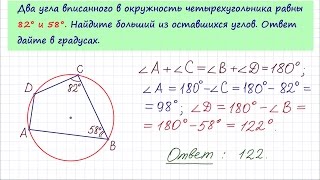 Два угла вписанного в окружность четырехугольника равны
82° и 58°. Найдите больший из оставшихся углов. Ответ
дайте в градусах.
C
82°
D
A
58°
B
∠A + ∠C = ∠B + ∠D = 180°;
∠A = 180° - ∠C = 180° - 82° =
= 98°; ∠D = 180° - ∠B =
= 180° - 58° = 122°.
Ответ : 122.